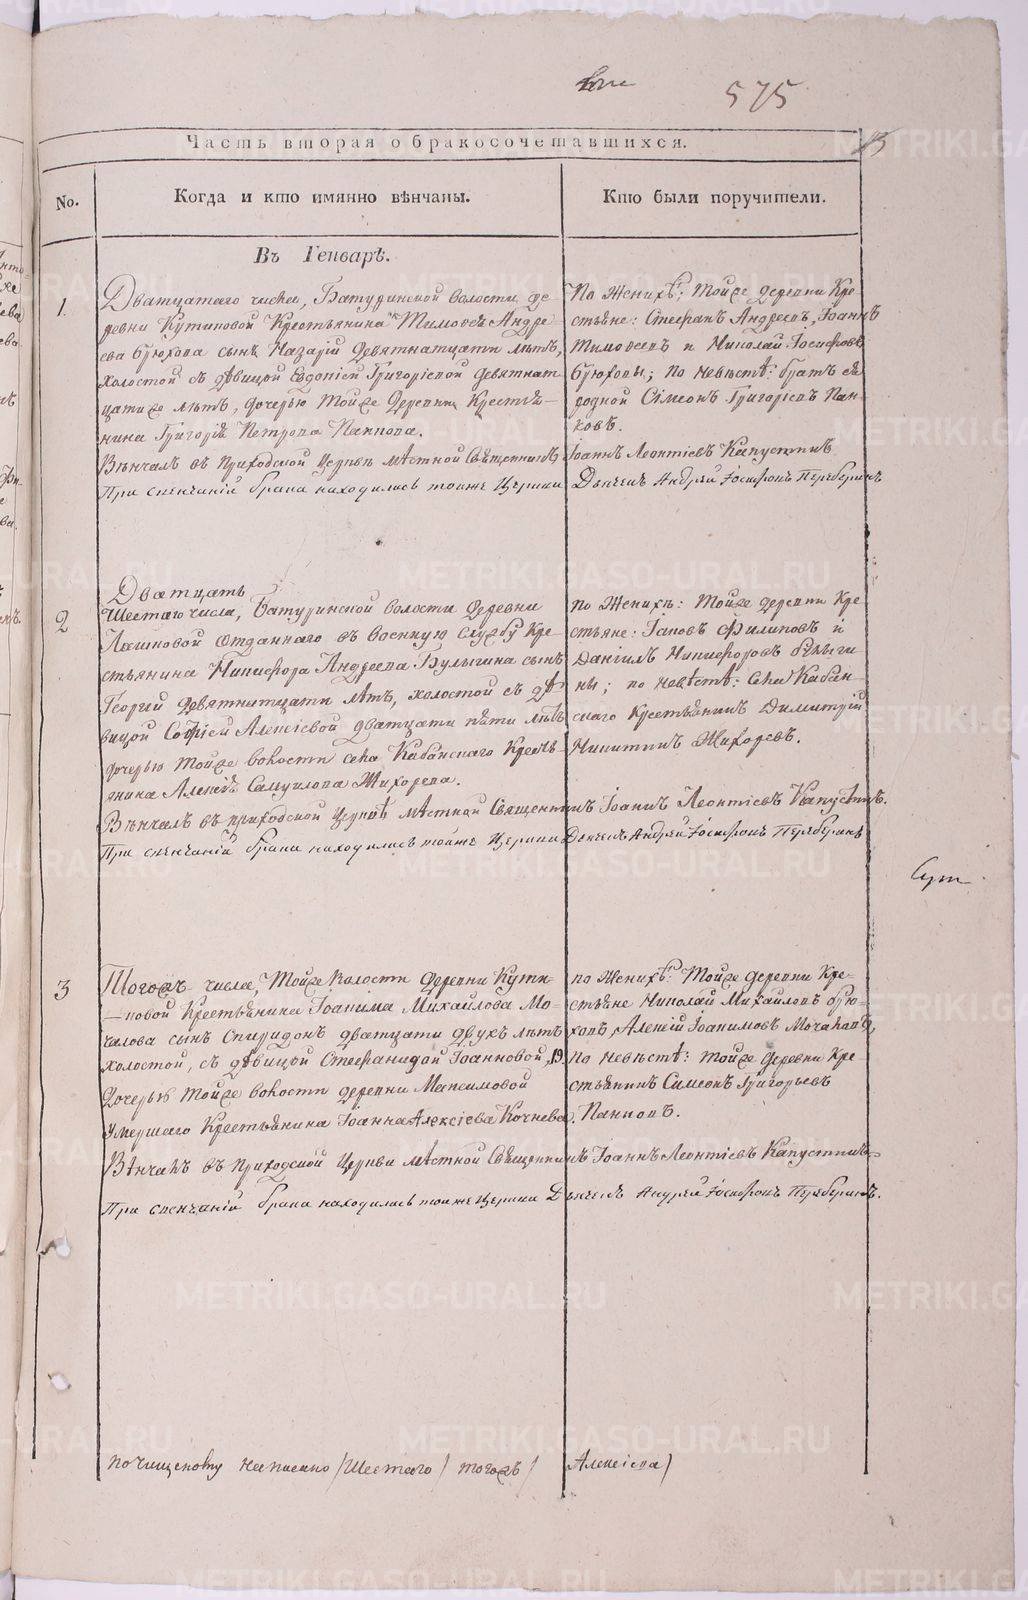 575
13
Часть вторая о бракосочетавшихся.
No.
Когда и кто имянно вѣнчаны.
Кто были поручители.
Въ Генварѣ.
1.
Дватцатаго числа, Батуринской волости де-
ревни Кутиковой Крестьянина Тимоѳея Андре-
ева Брюхова сынъ Назарій девятнатцати лѣтъ,
холостой съ дѣвицой Евдокіей Григорієвой девятнат
цати же лѣтъ, дочерью той же деревни Крестья-
нина Григорія Петрова Панкова.
Вѣнчалъ въ приходской церкви мѣстной Священникъ
При свенчаній брака находились тойже Церкви
По женихѣ: той же деревни Кре-
стьяне: Стефанъ Андреевъ, Іоаннъ
Тимоѳеевъ и Николай Іосифовъ
Брюховы; по невѣстѣ: братъ ея
родной Сімеонъ Григоріевъ Пан-
ковъ.
Іоаннъ Леонтіевъ Капустинъ
Дьячекъ Андрей Іосифовъ Переберинъ
2
Дватцать
Шестаго числа, Батуринской волости деревни
отданнаго въ военную службу Кре-
стьянина Никифора Андреева Булыгина сынъ
Георгій девятнатцати лѣтъ, холостой съ дѣ
вицой Софіей Алексіевой дватцати пяти лѣтъ
дочерью той же волости села Кабанскаго Кресть-
янина Алексія Самуилова Жихорева.
Вѣнчалъ въ приходской церквѣ мѣстной Священникъ Іоаннъ Леонтіевъ Капустинъ.
При свенчаній брака находились тойже Церкви Дьячекъ Андрей Іосифовъ Переберинъ
по женихѣ: той же деревни Кре
стьяне: Іаковъ Филиповъ и
Даніилъ Никифоровъ Булыги
ны; по невѣстѣ: села Кабан-
скаго Крестьянинъ Димитрій
Никитинъ Жихоревъ.
3
Тогожъ числа, той же волости деревни Кути-
ковой Крестьянина Іоакима Михайлова Мо-
чалова сынъ Спиридонъ дватцати двухъ лѣтъ
холостой, съ дѣвицой Стефанидой Іоанновой, 19.
дочерью той же волости деревни Максимовой
умершаго Крестьянина Іоанна Алексіева Кочнева.
Вѣнчалъ въ приходской Церкви мѣстной Священникъ Іоаннъ Леонтіевъ Капустинъ
При свенчаній брака находились тойже Церкви Дьячекъ Андрей Іосифовъ Переберинъ.
по женихѣ: той же деревни Кре-
стьяне Николай Михайловъ Брю-
ховъ, Алексій Іоакимовъ Мочаловъ,
по невѣстѣ: той же деревни Кре
стьянинъ Симеонъ Григорьевъ
Панковъ.
по чищеному написано / Шестаго / тогожъ / Алексіева /
METRIKI.GASO-URAL.RU